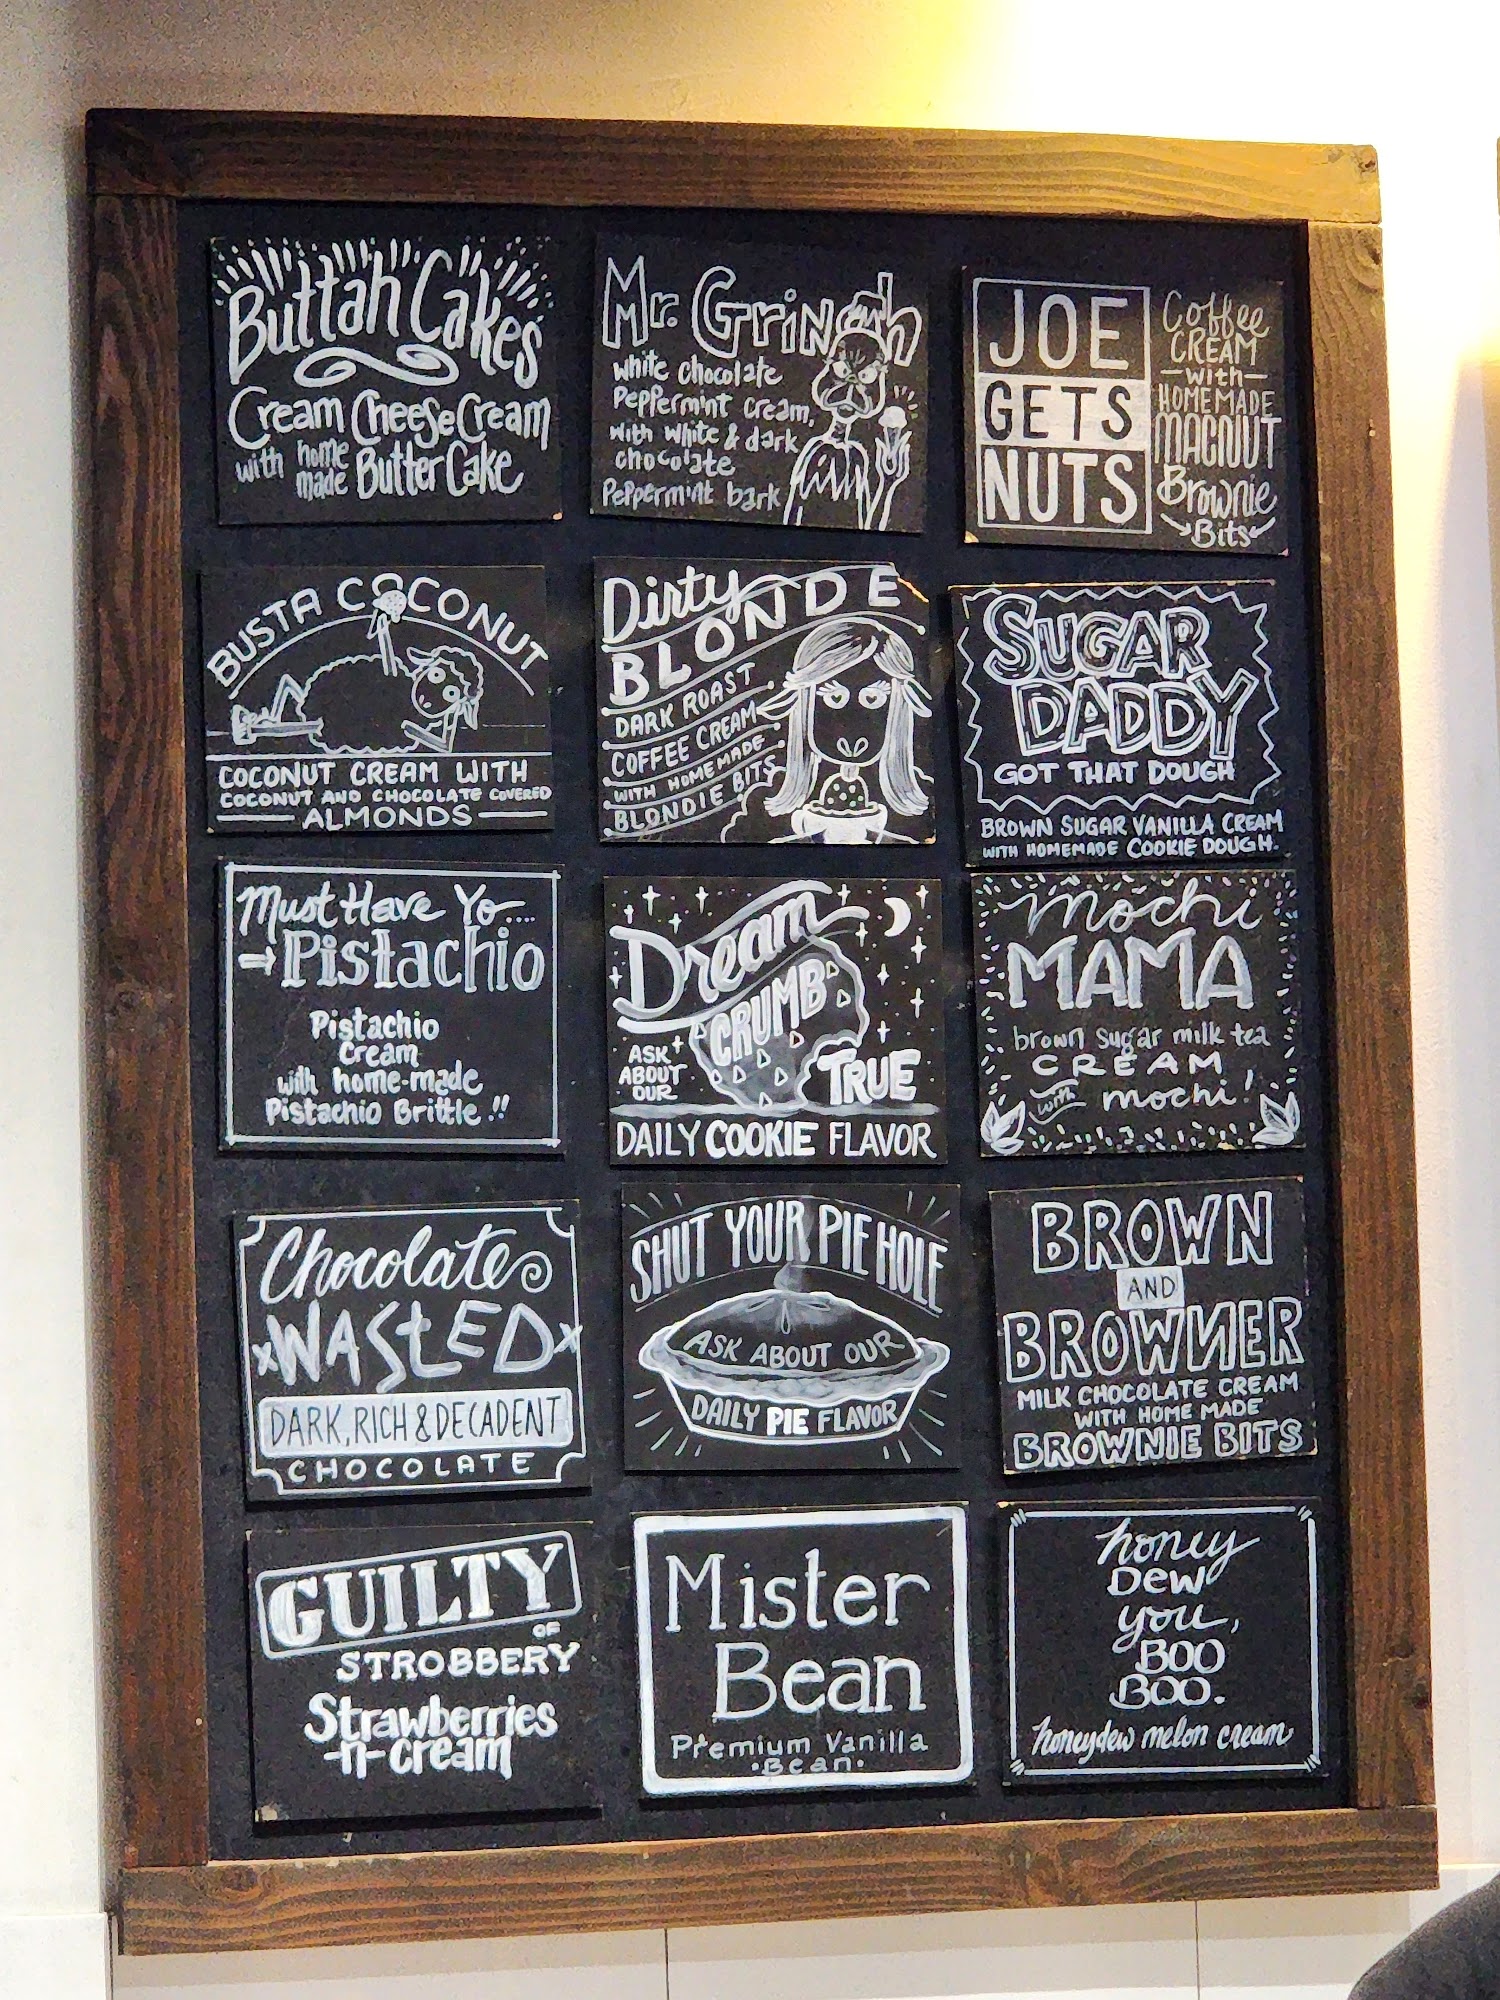 Buttah Cakes
Cream Cheese Cream
with home made Butter Cake
Mr. Grinch
white chocolate
Peppermint cream,
with white & dark
chocolate
Peppermint bark
JOE
GETS
NUTS
Coffee
CREAM
with
HOMEMADE
MACNUT
Brownie
Bits
BUSTA COCONUT
COCONUT CREAM WITH
COCONUT AND CHOCOLATE COVERED
ALMONDS
Dirty
BLONDE
DARK ROAST
COFFEE CREAM
WITH HOMEMADE
BLONDIE BITS
SUGAR
DADDY
GOT THAT DOUGH
BROWN SUGAR VANILLA CREAM
WITH HOMEMADE COOKIE DOUGH.
Must Have Yo....
→Pistachio
Pistachio
Cream
with home-made
Pistachio Brittle!!
Dream
CRUMB
TRUE
ASK
ABOUT
OUR
DAILY COOKIE FLAVOR
mochi
MAMA
brown sugar milk tea
CREAM
with mochi!
Chocolate
xWAStEDx
DARK, RICH & DECADENT
CHOCOLATE
SHUT YOUR PIE HOLE
ASK ABOUT OUR
DAILY PIE FLAVOR
BROWN
AND
BROWNER
MILK CHOCOLATE CREAM
WITH HOME MADE
BROWNIE BITS
GUILTY
OF
STROBBERY
Strawberries
-n-cream
Mister
Bean
Premium Vanilla
·Bean·
honey
Dew
you,
BOO
BOO.
honeydew melon cream